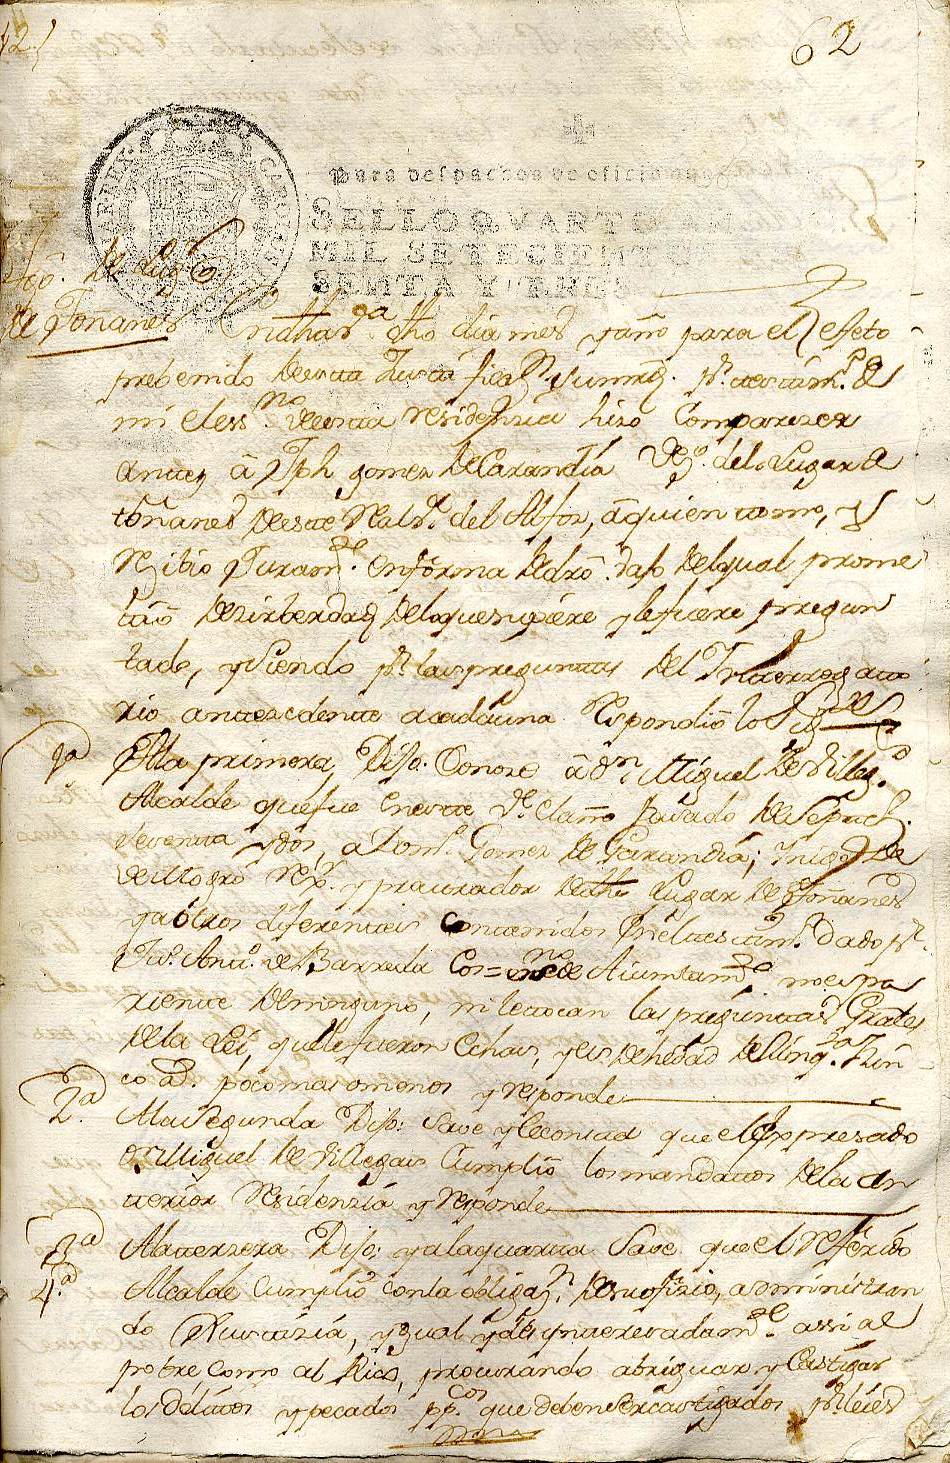 62
Para despachos de oficio
SELLO QVARTO, AN
MIL SETECIENTOS
SENTA Y TRES
CAROLVS
tgo. de Lugar
de Toñanes En dha Sria. dho dia mes y año para el efeto
prebenido de esta Justa. su mrd. pr. testimo. de
mi el ess.no de esta residenzia hizo Comparezer
antesi â Jph gomez de Carandia Vezº. del Lugar de
toñanes de este Rl. Valle. del Alfoz, âquien tomo, y
Rezibio Juram.to en forma de dro. vaxo del qual prome
tio dezir berdad de lo que supiere y le fuere pregun
tado, y siendo pr. las preguntas del Interrogato
rio antezedente acadauna Respondio lo sig.te
1ª Ala primera Dijo. Conoze â dn. Miguel de Villegs.
Alcalde que fue en este Ve. el año pasado de Setect.
sesenta y dos, a Domº. Gomez de Carandia; Inigo de
de Mogro Rexr. y procurador de dho Lugar de Toñanes
y a otros diferentes Contenidos en el testimo. dado pr.
Juº. Antº. de Barreda Cos= essno de Aiuntamto, no es pa
riente de ninguno, ni le tocan las preguntas Grales
de la Lei, que le fueron echas, y es de hedad de Cinqta. Zin
co as. poco mas o menos y responde
2ª Ala Segunda Dijo: Save y le consta que el Expresado
dn. Miguel de Villegas Cumplio los mandatos de la an
terior residenzia y responde
3ª Ala terzera Dijo; y ala quarta Save que el referido
4.ª Alcalde Cumplio con la obligazn. de su ofizio, administran
do Justizia, ygual y desynteresadamte. assi al
pobre como al Rico, procurando abriguar y Castigar
los delitos y pecados ppcos. que deben ser castigados pr. leies